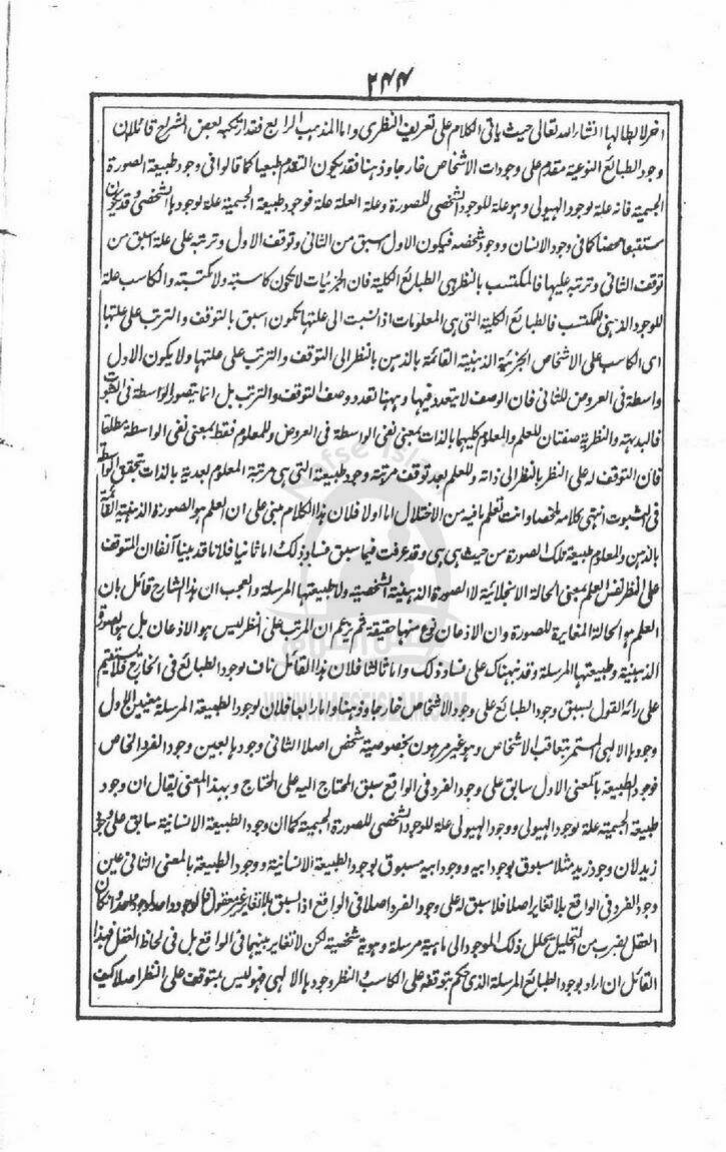 ٢٤٤
اخر لابطالها انشاء الله تعالى حيث ياتى الكلام على تعريف النظرى واما المذهب الرابع فقد ارتكبه بعض الشراح قائلا ان
وجود الطبائع النوعية مقدم على وجودات الاشخاص خارجا وذهنا فقد يكون التقدم طبعيا كما قالوا فى وجود طبيعة الصورة
الجسمية فانه علة لوجود الهيولى وهو علة للوجود الشخصى للصورة وعلة العلة علة فوجود طبيعة الجسمية علة لوجودها الشخصى وقد يكون
مستتبعا محضا كما فى وجود الانسان ووجود شخصه فيكون الاول اسبق من الثانى وتوقف الاول وترتبه على علة اسبق من
توقف الثانى وترتبه عليها فالمكتسب بالنظر هى الطبائع الكلية فان الجزئيات لا تكون كاسبة ولا مكتسبة والكاسب علة
للوجود الذهنى للمكتسب فالطبائع الكلية التى هى المعلومات اذا نسبت الى علتها تكون اسبق بالتوقف والترتب على علتها
اى الكاسب على الاشخاص الجزئية الذهنية القائمة بالذهن بالنظر الى التوقف والترتب على علتها ولا يكون الاول
واسطة فى العروض للثانى فان الوصف لا يتعدد فيها وههنا تعدد وصف التوقف والترتب بل انما يتصور الواسطة فى الثبوت
فالبداهة والنظرية صفتان للعلم والمعلوم كليهما بالذات بمعنى نفى الواسطة فى العروض وللمعلوم فقط بمعنى نفى الواسطة مطلقا
فان التوقف له على النظر بالنظر الى ذاته وللعلم بعد توقف مرتبة وجود طبيعته التى هى مرتبة المعلوم لبعدية بالذات بتحقق الواسطة
فى الثبوت انتهى كلامه ملخصا وانت تعلم ما فيه من الاختلال اما اولا فلان هذا الكلام مبنى على ان العلم هو الصورة الذهنية القائمة
بالذهن والمعلوم طبيعة تلك الصورة من حيث هى هى وقد عرفت فيما سبق فساد ذلك واما ثانيا فلانا قد بينا آنفا ان المتوقف
على النظر نفس العلم بمعنى الحالة الانجلائية لا الصورة الذهنية الشخصية ولا طبيعتها المرسلة والعجب ان هذا الشارح قائل بان
العلم هو الحالة المغايرة للصورة وان الاذعان نوع منها حقيقة ثم يزعم ان المرتب على النظر ليس هو الاذعان بل هو الصورة
الذهنية وطبيعتها المرسلة وقد نبهناك على فساد ذلك واما ثالثا فلان هذا القائل ناف لوجود الطبائع فى الخارج فلا يستقيم
على رائه القول بسبق وجود الطبائع على وجود الاشخاص خارجا وذهنا واما رابعا فلان لوجود الطبيعة المرسلة معنيين الاول
وجودها الالهى المستمر بتعاقب الاشخاص وهو غير مرهون بخصوصية شخص اصلا الثانى وجودها بعين وجود الفرد الخاص
فوجود الطبيعة بالمعنى الاول سابق على وجود الفرد فى الواقع سبق المحتاج اليه على المحتاج وبهذا المعنى يقال ان وجود
طبيعة الجسمية علة لوجود الهيولى ووجود الهيولى علة للوجود الشخصى للصورة الجسمية كما ان وجود الطبيعة الانسانية سابق على وجود
زيد لان وجود زيد مثلا مسبوق بوجود ابيه ووجود ابيه مسبوق بوجود الطبيعة الانسانية ووجود الطبيعة بالمعنى الثانى عين
وجود الفرد فى الواقع بلا تغاير اصلا فلا سبق له على وجود الفرد اصلا فى الواقع اذ السبق بلا تغاير غير معقول وان كان
العقل بضرب من التحليل يحلل ذلك الموجود الى ماهية مرسلة وهوية شخصية لكن لا تغاير بينهما فى الواقع بل فى لحاظ العقل فهذا
القائل ان اراد بوجود الطبائع المرسلة الذى حكم بتوقفه على الكاسب والنظر وجودها الالهى فهو ليس بمتوقف على النظر اصلا كيف
Nafse Islam
WWW.NAFSEISLAM.COM